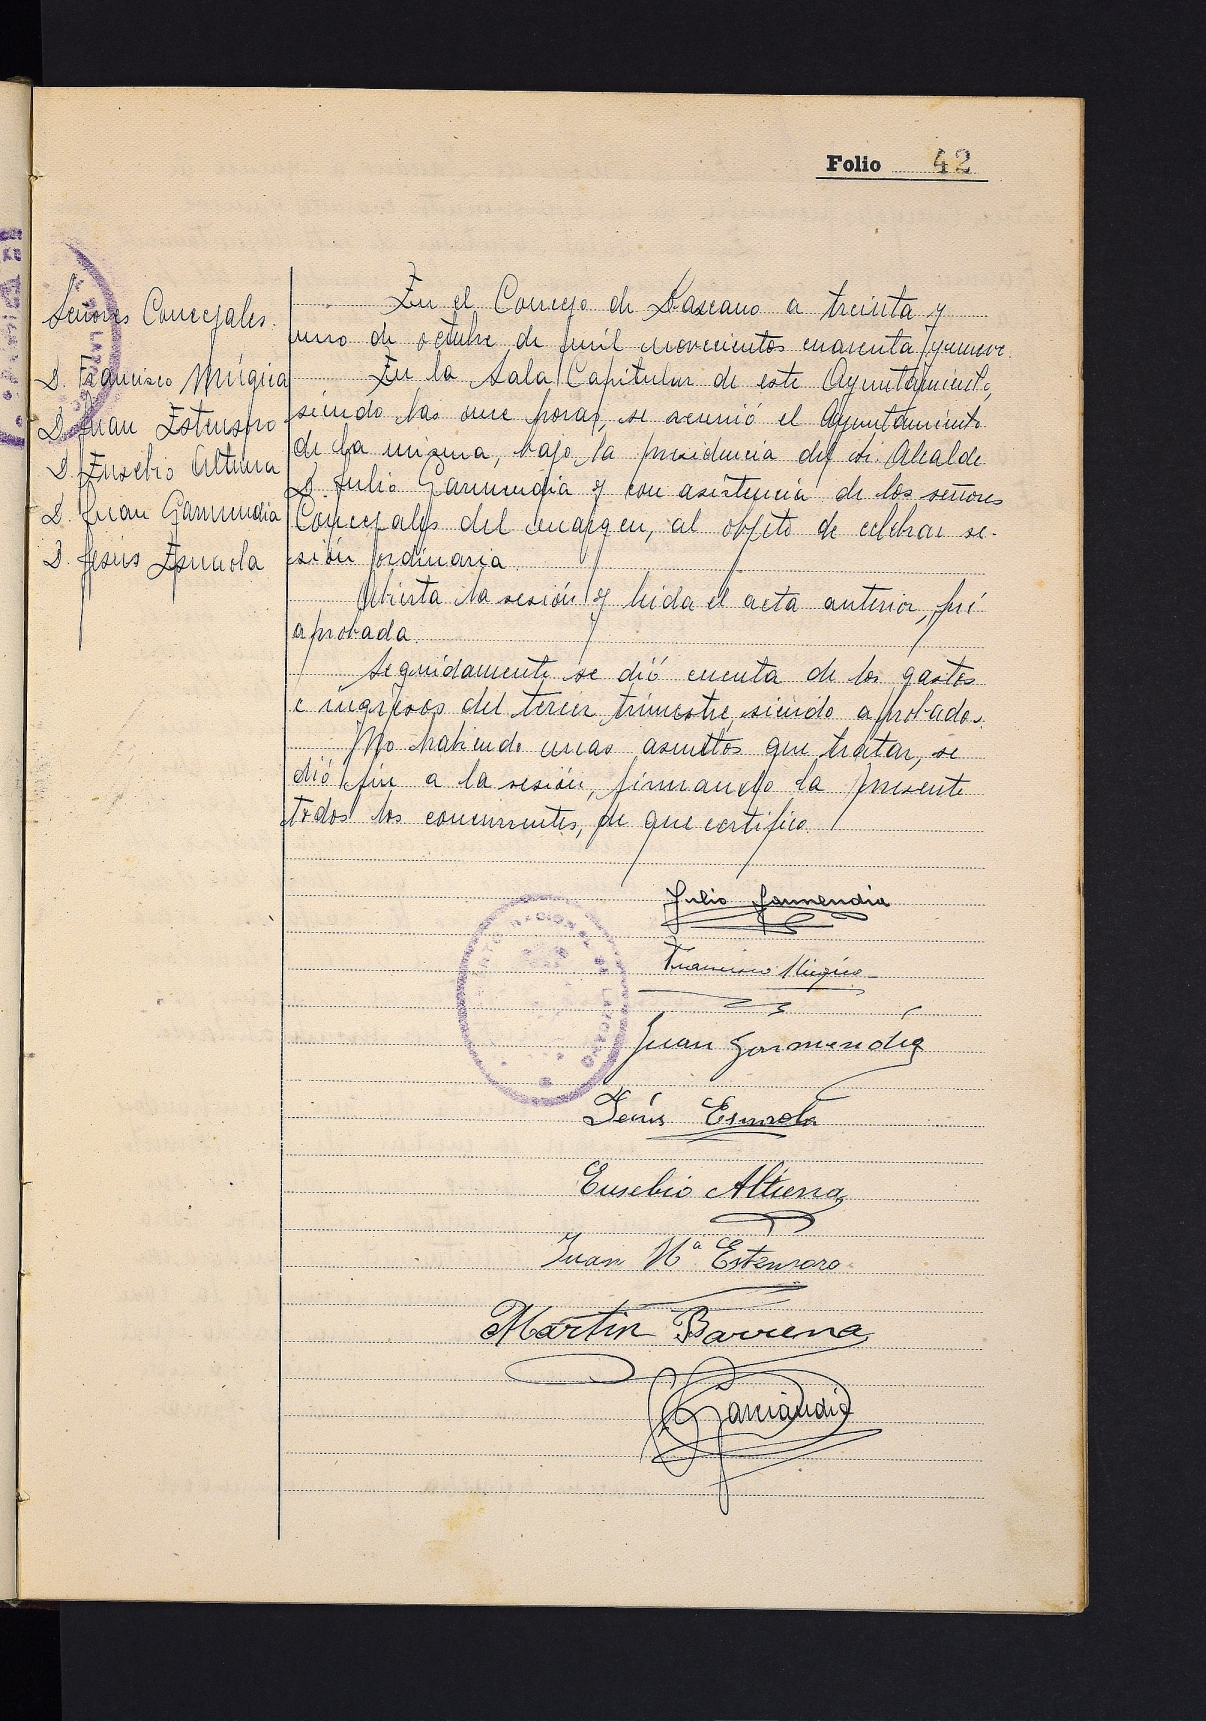 Folio 42
Señores Concejales.
D. Francisco Múgica
D. Juan Estensoro
D. Eusebio Altuna
D. Juan Garmendia
D. Jesús Esnaola
En el Concejo de Lazcano a treinta y
uno de octubre de mil novecientos cuarenta y nueve.
En la Sala Capitular de este Ayuntamiento,
siendo las once horas, se reunió el Ayuntamiento
de la misma, bajo la presidencia del Sr. Alcalde
D. Julio Garmendia y con asistencia de los señores
Concejales del margen, al objeto de celebrar se-
sión ordinaria.
Abierta la sesión y leida el acta anterior, fué
aprobada.
Seguidamente se dió cuenta de los gastos
e ingresos del tercer trimestre, siendo aprobados.
No habiendo mas asuntos que tratar, se
dió fin a la sesión, firmando la presente
todos los concurrentes, de que certifico.
Julio Garmendia
Francisco Múgica
Juan Garmendia
Jesús Esnaola
Eusebio Altuna
Juan Mª Estensoro
Martin Barrena